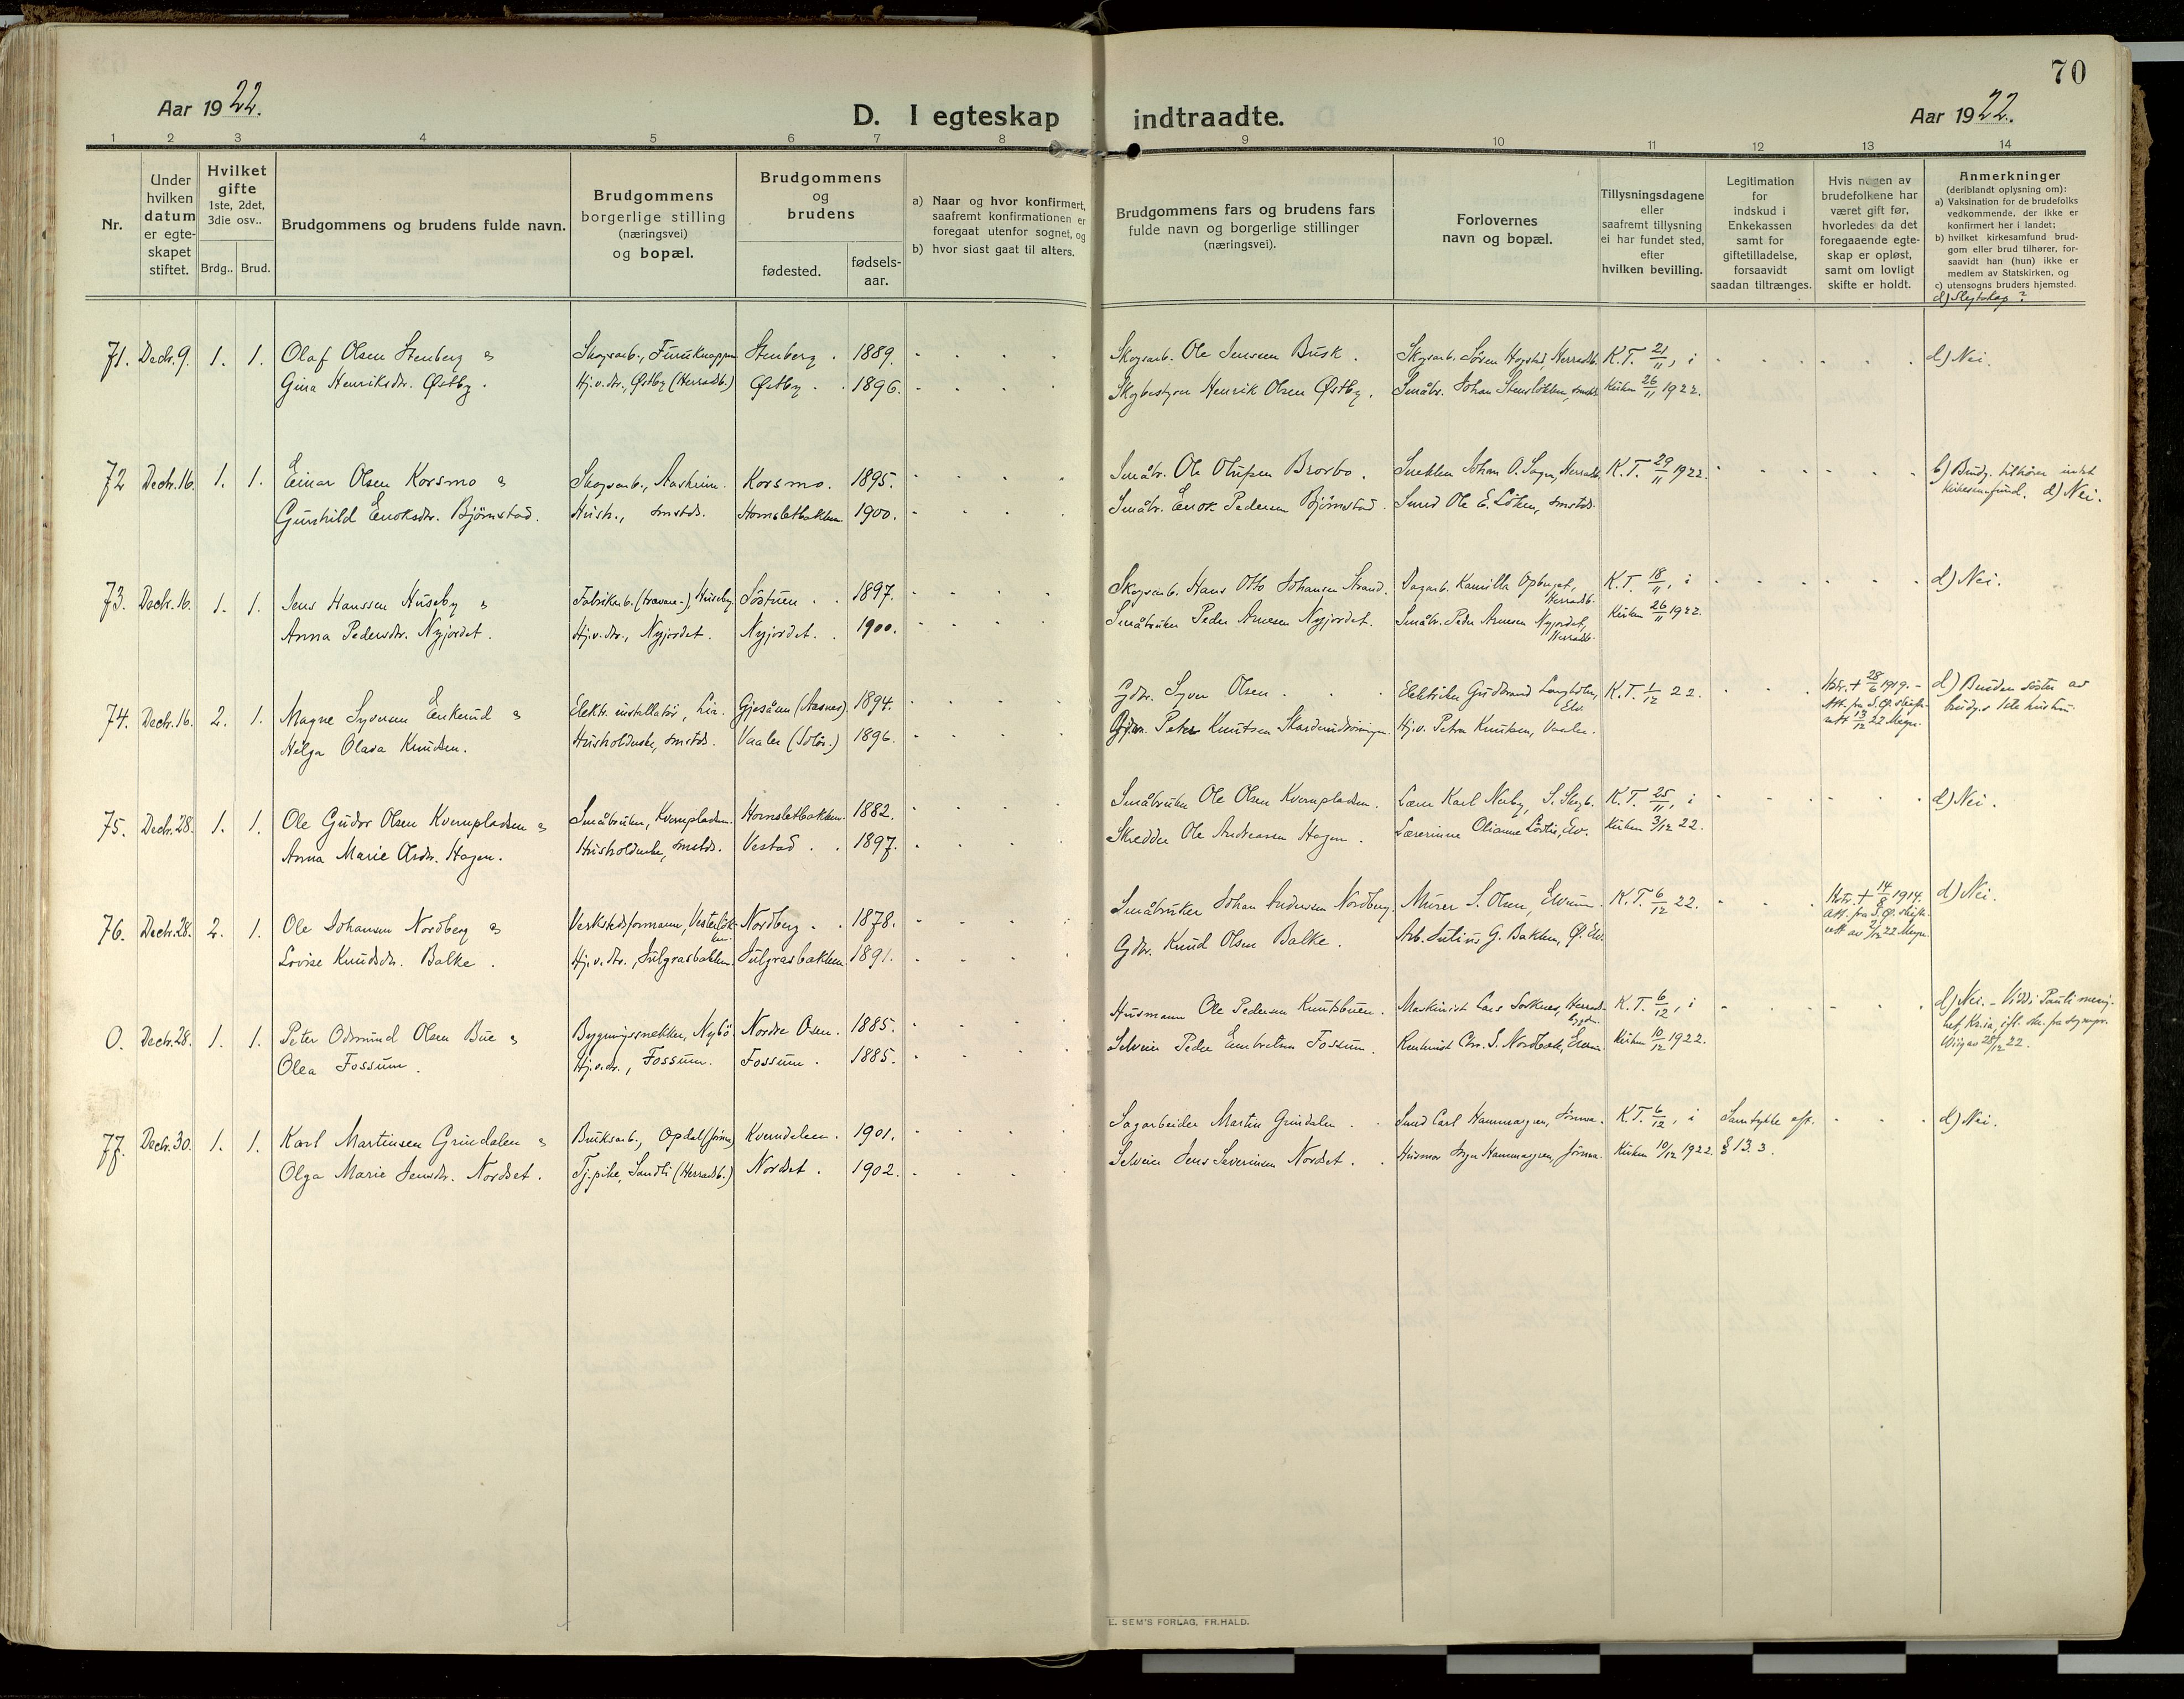 70
Aar 1922.
D. I egteskap indtraadte.
Aar 1922.
1 2 3 4 5 6 7 8 9 10 11 12 13 14
Nr.
Under
hvilken
datum
er egte-
skapet
stiftet.
Hvilket
gifte
1ste, 2det,
3die osv..
Brdg.. Brud.
Brudgommens og brudens fulde navn.
Brudgommens
borgerlige stilling
(næringsvei)
og bopæl.
Brudgommens
og
brudens
fødested.
fødsels-
aar.
a) Naar og hvor konfirmert,
saafremt konfirmationen er
foregaat utenfor sognet, og
b) hvor sidst gaat til alters.
Brudgommens fars og brudens fars
fulde navn og borgerlige stillinger
(næringsvei).
Forlovernes
navn og bopæl.
Tillysningsdagene
eller
saafremt tillysning
ei har fundet sted,
efter
hvilken bevilling.
Legitimation
for
indskud i
Enkekassen
samt for
giftetilladelse,
forsaavidt
saadan tiltrænges.
Hvis nogen av
brudefolkene har
været gift før,
hvorledes da det
foregaaende egte-
skap er opløst,
samt om lovligt
skifte er holdt.
Anmerkninger
(deriblandt oplysning om):
a) Vaksination for de brudefolks
vedkommende, der ikke er
konfirmert her i landet;
b) hvilket kirkesamfund brud-
gom eller brud tilhører, for-
saavidt han (hun) ikke er
medlem av Statskirken, og
c) utensogns bruders hjemsted.
d) Slegtskap?
71. Decbr. 9. 1. 1. Olaf Olsen Stenberg & Skogsarb., Furuknappen Stenberg. 1889. Skogsarb. Ole Jensen Busk. Skogsarb. Søren Hogstad, Herradb. K.T. 21/11, i d) Nei.
Gina Henriksdr. Østby. Hj.v.dr., Østby (Herradb.) Østby. 1896. Skogbestyrer Henrik Olsen Østby. Småbr. Johan Stensløkken, smstds. Kirken 26/11 1922.
72 Decbr. 16. 1. 1. Einar Olsen Korsmo & Skogsarb., Aasheim. Korsmo. 1895. Småbr. Ole Olufsen Brorbo. Snekker Johan O. Sagen, Herradb. K.T. 29/11 1922. b) Brudg. tilhører intet
Gunhild Enoksdr. Bjørnstad. Hush., smstds. Hornsletbakken 1900. Småbr. Enok Pedersen Bjørnstad. Smed Ole E. Løken, smstds. kirkesamfund. d) Nei.
73. Decbr. 16. 1. 1. Jens Hanssen Huseby & Fabrikarb. (trævare-), Huseby Søstuen. 1897. Skogsarb. Hans Otto Johansen Strand. Dagarb. Kamilla Ophuset, Herradb. K.T. 18/11, i d) Nei.
Anna Pedersdr. Nyjordet. Hj.v.dr., Nyjordet. Nyjordet. 1900. Småbruker Peder Arnesen Nyjordet. Småbr. Peder Arnesen Nyjordet, Herradb. Kirken 26/11 1922.
74. Decbr. 16. 2. 1. Magne Syversen Enkerud & Elektr. installatør, Lia. Gjesåsen (Aasnes). 1894. Gdbr. Syver Olsen. Elektriker Gudbrand Langholen, Elv. K.T. 1/12 22. Hstr. + 28/6 1919. - d) Bruden søster av
Helga Olava Knudsen. Husholderske, smstds. Vaaler (Solør.) 1896. Peter Knutsen Hj.v. Petra Knutsen, Vaaler. Att. fra S. Ø. skifte- brudg.s 1ste hustru
rett 13/12 22
75. Decbr. 28. 1. 1. Ole Gudor Olsen Kvernpladsen & Småbruker, Kvernpladsen. Hornsletbakken. 1882. Småbruker Ole Olsen Kvernpladsen. Lærer Karl Nerby, S. Skogb. K.T. 25/11, i d) Nei.
Anna Marie Olsdr. Hagen. Husholderske, smstds. Vestad. 1897. Skredder Ole Andreassen Hagen. Lærerinne Olianne Løvlie, Elv. Kirken 3/12 22.
76. Decbr. 28. 2. 1. Ole Johansen Nordberg & Verkstedsformann, Nordberg. 1878. Småbruker Johan Andersen Nordberg. Murer S. Olsen, Elverum. K.T. 6/12 22. Hstr. + 14/8 1914. d) Nei.
Lovise Knudsdr. Balke. Hj.v.dr., Julgrasbakken. Julgrasbakken 1891. Gdbr. Knud Olsen Balke. Arb. Julius G. Bakken, Ø. Elv. Att. fra S. Ø. skifte-
rett av 2/12 22
0. Decbr. 28. 1. 1. Peter Odmund Olsen Bue & Bygningssnekker, Nybo. Nordre Osen. 1885. Husmann Ole Pedersen Knutsbuen. Maskinist Lars Herradsbygden. K.T. 6/12, i d) Nei. - Viddi Pauli menig-
Olea Fossum. Hj.v.dr., Fossum. Fossum. 1885. Selveier Peder Embretsen Fossum. Chr. S. Elverum. Kirken 10/12 1922. het, Kr.ia, ifl. skr. fra sogneprest
28/12 22.
77. Decbr. 30. 1. 1. Karl Martinsen Grindalen & Bruksarb., Opdal (Jømna) Kverndalen. 1901. Sagarbeider Martin Grindalen. Smed Carl Hammargren, Jømna. K.T. 6/12, i Samtykke eft. d) Nei.
Olga Marie Jensdr. Nordset. Tj.pike, Sandli (Herradsb.) Nordset. 1902. Selveier Jens Severinsen Nordset. Husmor Inga Hammargren, Jømna. Kirken 10/12 1922. § 13. 3.
E. SEM'S FORLAG, FR.HALD.